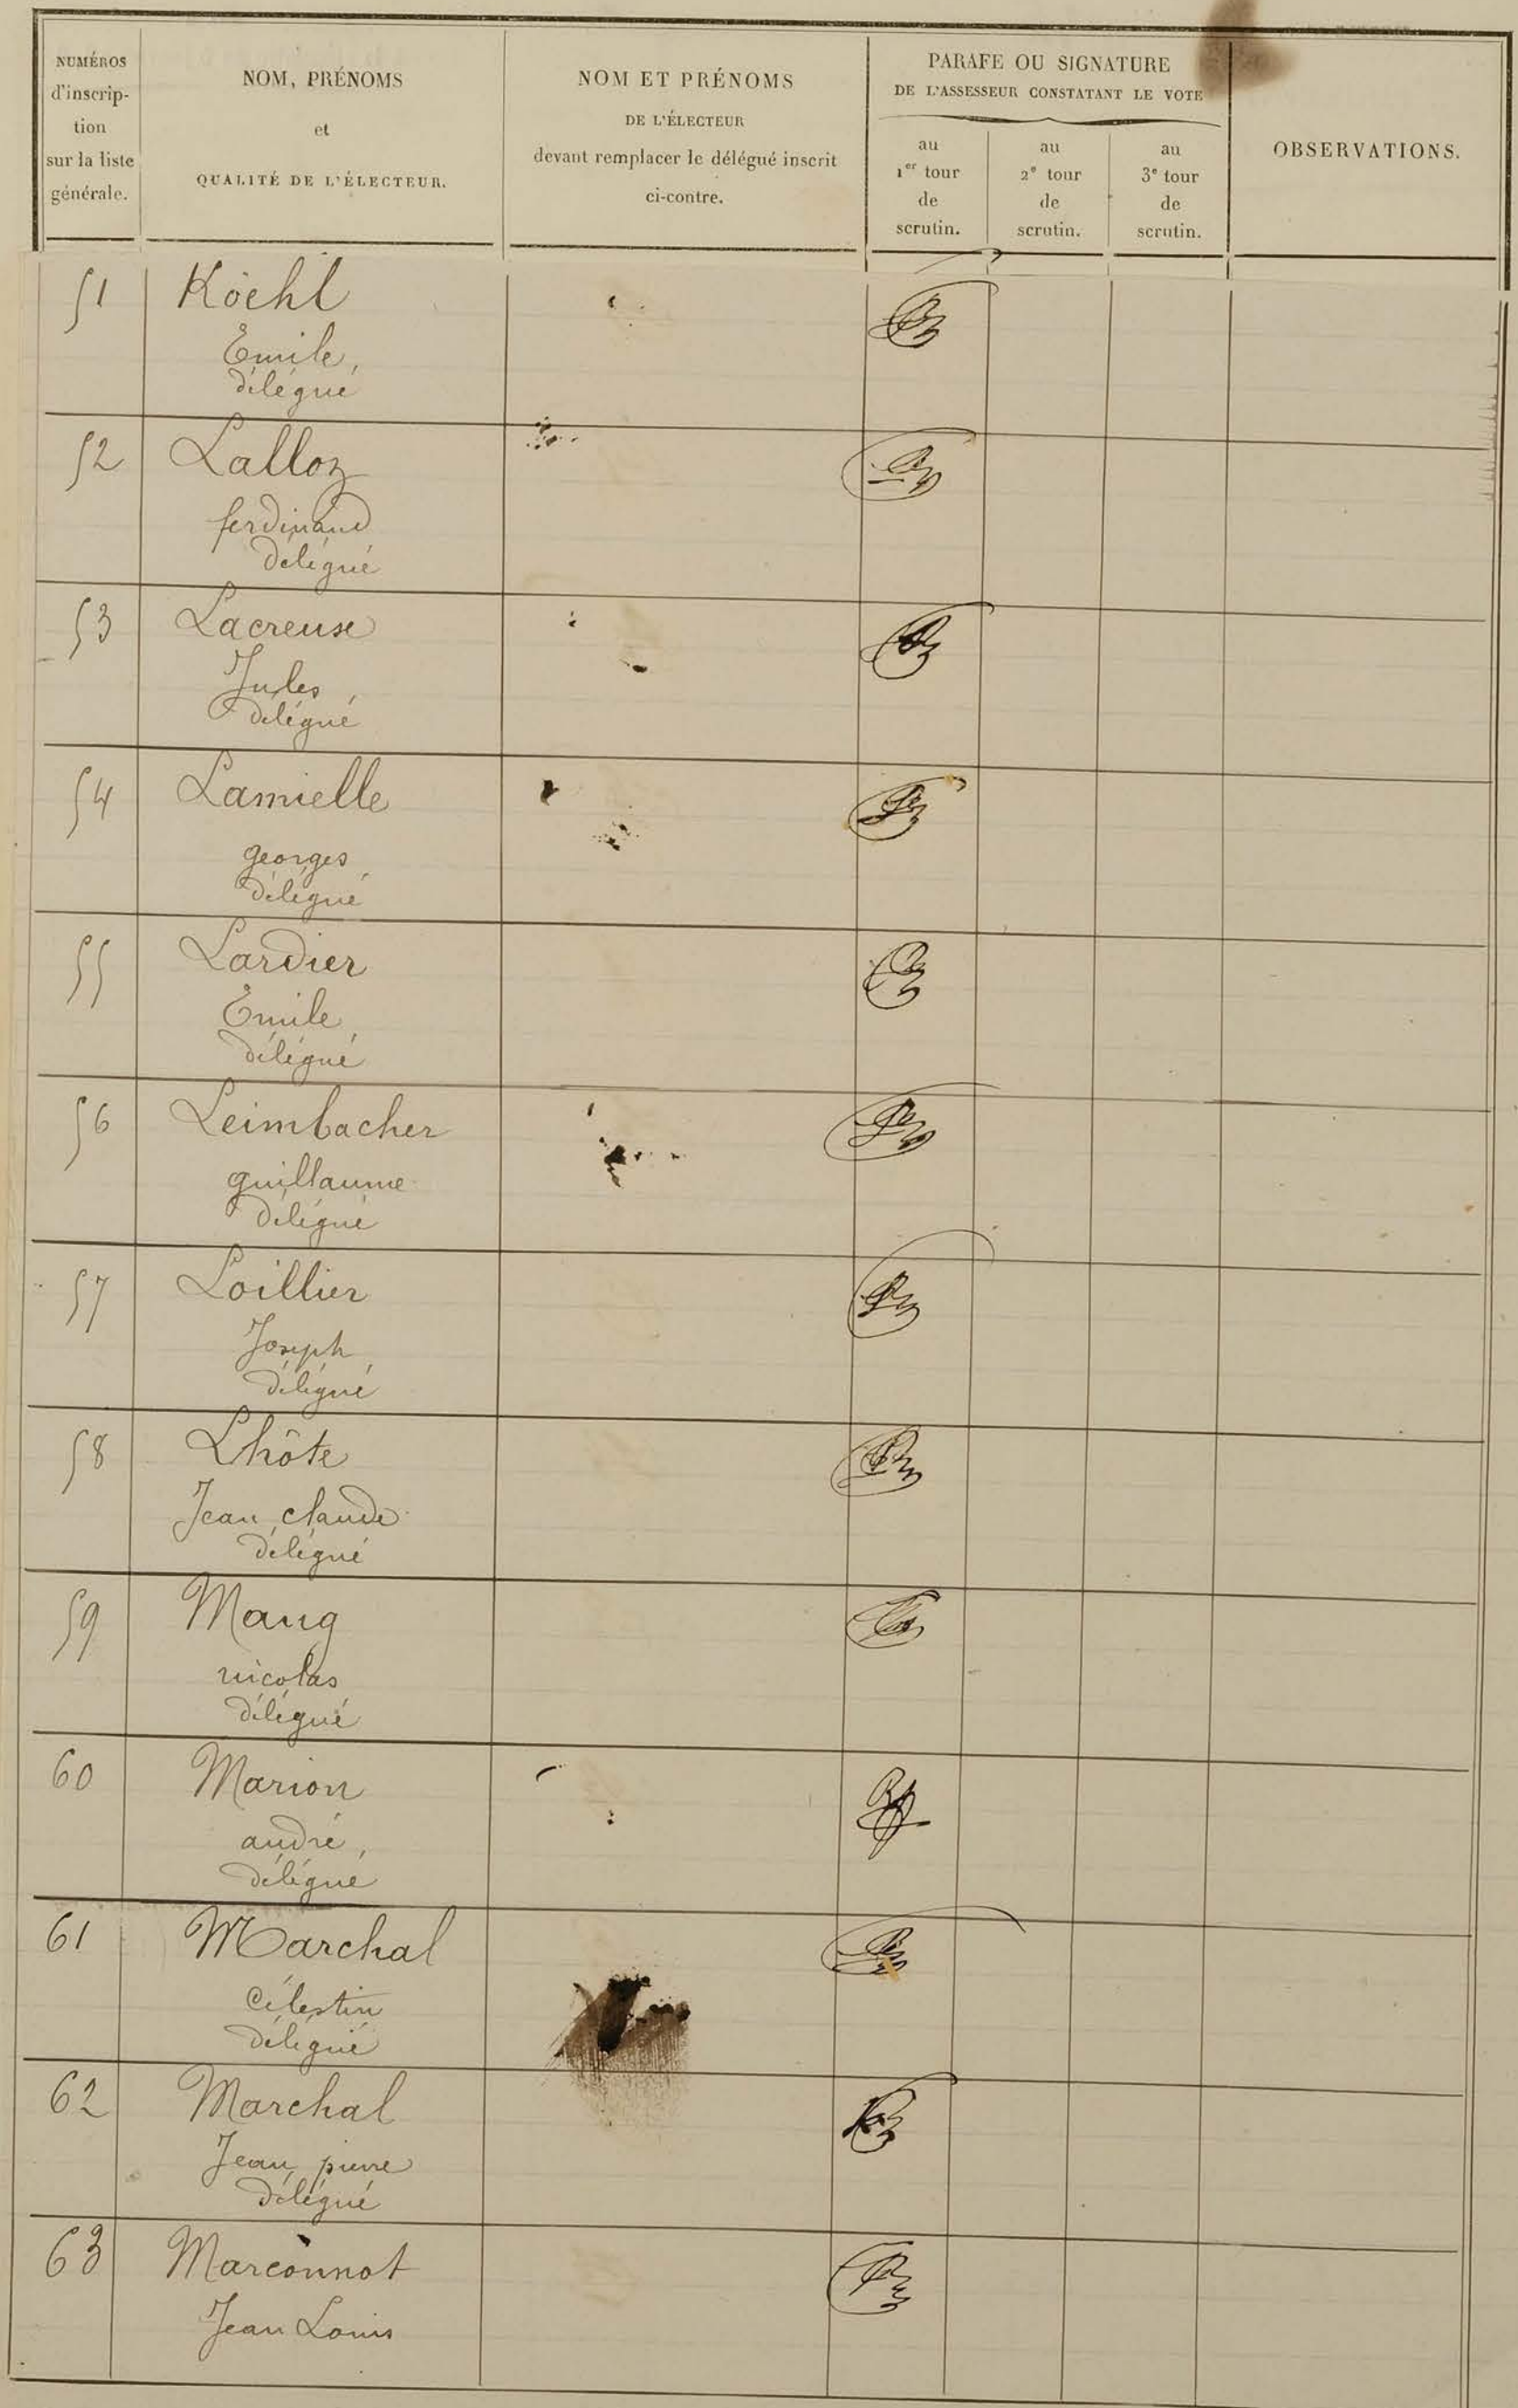 NUMÉROS
d'inscrip-
tion
sur la liste
générale.
NOM, PRÉNOMS
et
QUALITÉ DE L'ÉLECTEUR.
NOM ET PRÉNOMS
DE L'ÉLECTEUR
devant remplacer le délégué inscrit
ci-contre.
PARAFE OU SIGNATURE
DE L'ASSESSEUR CONSTATANT LE VOTE
au
1er tour
de
scrutin.
au
2e tour
de
scrutin.
au
3e tour
de
scrutin.
OBSERVATIONS.
51 Koehl
Emile,
délégué
52 Lalloz
ferdinand
délégué
53 Lacreuse
Jules,
délégué
54 Lamielle
georges,
délégué
55 Lardier
Emile,
délégué
56 Leimbacher
guillaume
délégué
57 Loillier
Joseph,
délégué
58 Lhôte
Jean claude
délégué
59 Maug
nicolas
délégué
60 Marion
andré,
délégué
61 Marchal
Célestin
délégué
62 Marchal
Jean pierre
délégué
63 Marconnot
Jean Louis